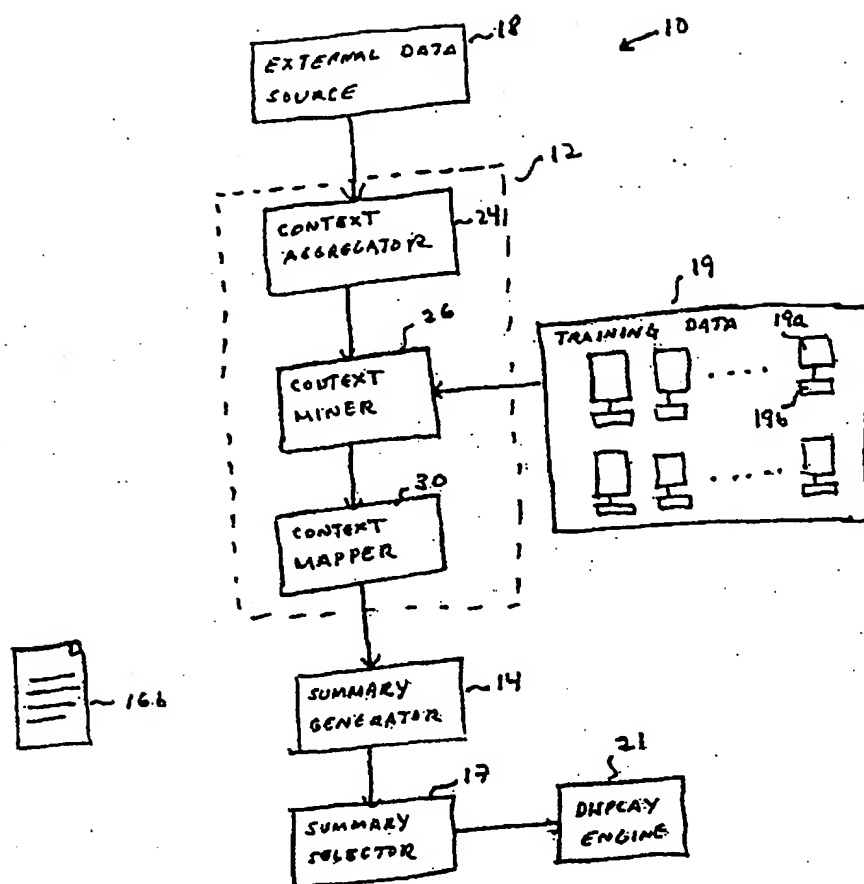 10
18
EXTERNAL DATA
SOURCE
12
CONTEXT
AGGREGATOR
24
26
CONTEXT
MINER
19
TRAINING DATA
19a
19b
30
CONTEXT
MAPPER
16b
SUMMARY
GENERATOR
14
17
SUMMARY
SELECTOR
21
DISPLAY
ENGINE